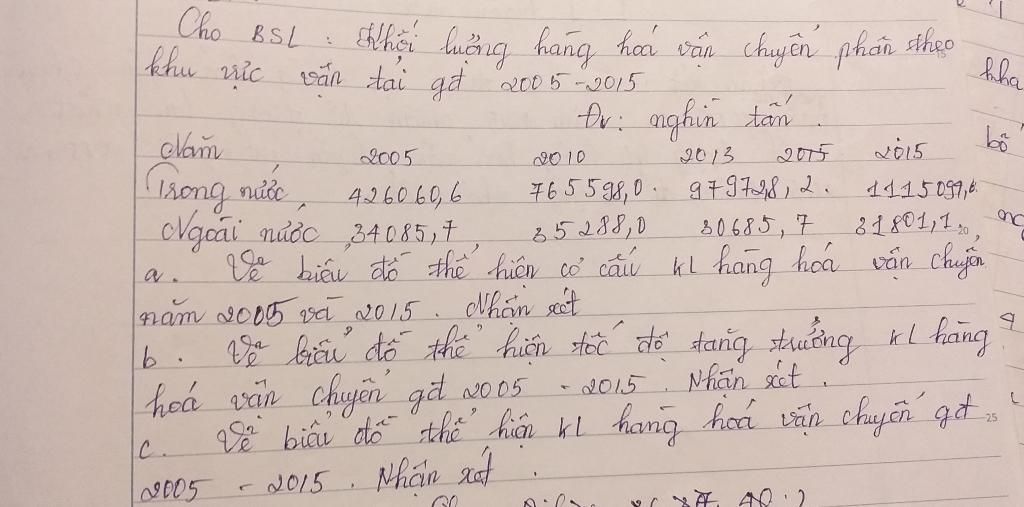 Cho BSL : Khối lượng hàng hoá vận chuyển phân theo
khu vực vận tải gđ 2005-2015
Đv: nghìn tấn.
Năm 2005 2010 2013 2015 2015
Trong nước 426060,6 765598,0. 979728,2. 1115097,6.
Ngoài nước 34085,7 35288,0 30685,7 31801,1
a. Vẽ biểu đồ thể hiện cơ cấu kl hàng hoá vận chuyển
năm 2005 và 2015. Nhận xét
b. Vẽ biểu đồ thể hiện tốc độ tăng trưởng kl hàng
hoá vận chuyển gđ 2005 - 2015. Nhận xét.
c. Vẽ biểu đồ thể hiện kl hàng hoá vận chuyển gđ
2005 - 2015. Nhận xét.